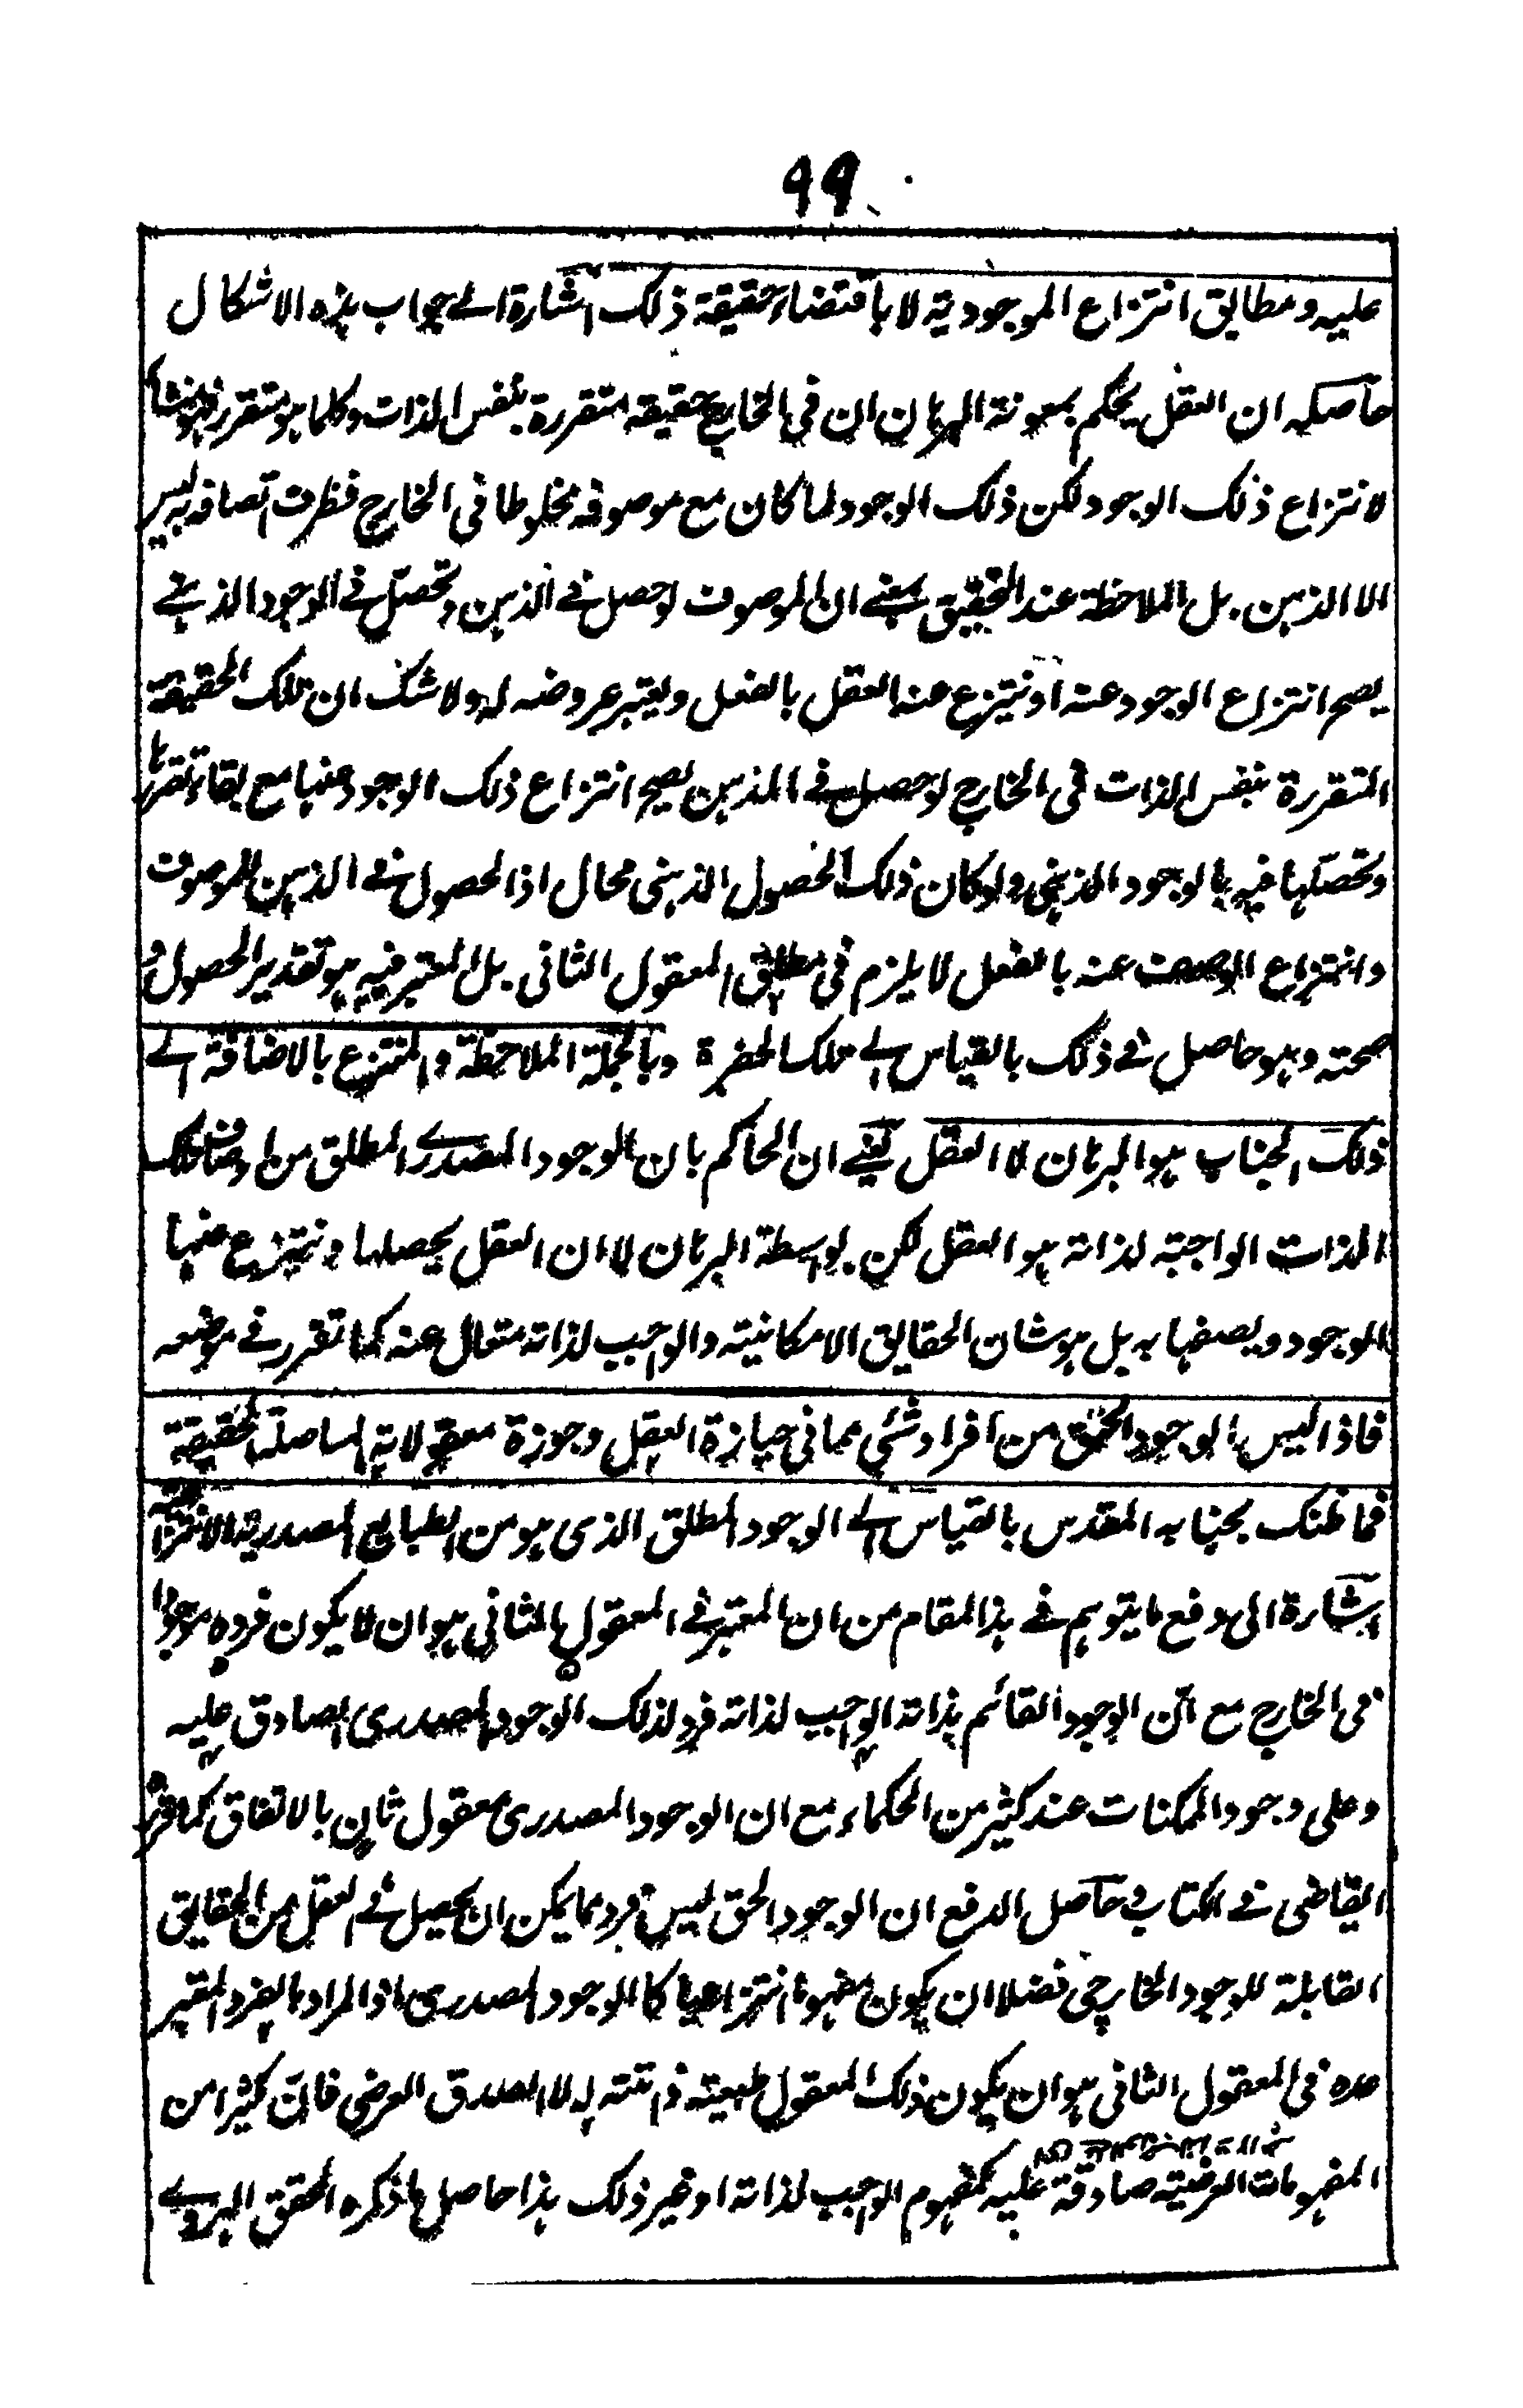 ٩٩
عليه ومطابق انتزاع الموجودية لا باقتضاء حقيقة ذلك اشارة الى جواب هذه الاشكال
حاصله ان العقل يحكم بمعونة البرهان ان في الخارج حقيقة متقررة بنفس الذات وكلما هو متقرر فهو منشأ
لانتزاع ذلك الوجود لكن ذلك الوجود لما كان مع موصوفه مخلوطا في الخارج فظرف اتصافه به ليس
الا الذهن بل الملاحظة عند التحقيق بمعنى ان الموصوف لو حصل في الذهن وتحصل في الوجود الذهني
يصح انتزاع الوجود عنه او ينتزع عنه العقل بالفعل ويعتبر عروضه له ولا شك ان تلك الحقيقة
المتقررة بنفس الذات في الخارج لو حصل في الذهن يصح انتزاع ذلك الوجود عنها مع بقاء تقررها
وتحصلها فيه بالوجود الذهني ولو كان ذلك الحصول الذهني محال اذ الحصول في الذهن للموصوف
وانتزاع الوصف عنه بالفعل لا يلزم في مطابق المعقول الثاني بل المعتبر فيه هو تقدير الحصول و
صحته وهو حاصل في ذلك بالقياس الى تلك الحضرة وبالجملة الملاحظة والمنتزع بالاضافة الى
ذلك الجناب هو البرهان لا العقل يعني ان الحاكم بان الوجود المصدرى المطلق من اوصاف تلك
الذات الواجبة لذاته هو العقل لكن بواسطة البرهان لا ان العقل يحصلها وينتزع عنها
الوجود ويصفها به بل هو شان الحقايق الامكانيته والواجب لذاته متعال عنه كما تقرر في موضعه
فاذا ليس الوجود الحق من افراد شئي مما في حيازة العقل وحوزة معقولاته المتاصلة الحقيقة
فما ظنك بجنابه المقدس بالقياس الى الوجود المطلق الذى هو من الطبايع المصدرية الانتزاعية
اشارة الى دفع ما يتوهم في هذا المقام من ان المعتبر في المعقول الثاني هو ان لا يكون فرده موجودا
في الخارج مع ان الوجود القائم بذاته الواجب لذاته فرد لذلك الوجود المصدرى الصادق عليه
وعلى وجود الممكنات عند كثير من الحكماء مع ان الوجود المصدرى معقول ثان بالاتفاق كما قرر
القاضى في الكتاب حاصل الدفع ان الوجود الحق ليس فرد مما يمكن ان يحصل في العقل من الحقايق
القابلة للوجود الخارجى فضلا ان يكون مفهوما انتزاعيا كالوجود المصدرى اذ المراد بالفرد المعتبر
عدمه في المعقول الثاني هو ان يكون ذلك المعقول طبيعته ذاتيته له لا الصدق العرضى فان كثيرا من
المفهومات العرضيته صادقة عليه كمفهوم الواجب لذاته او غير ذلك هذا حاصل ما ذكره المحقق الهروى